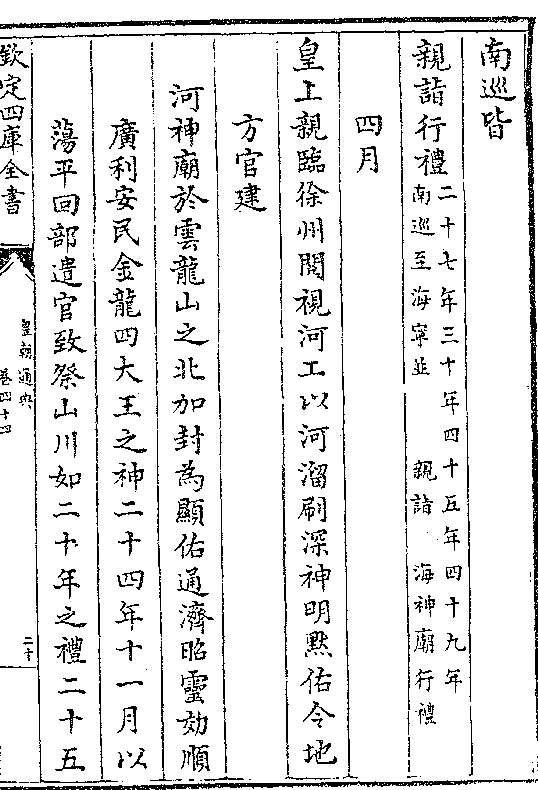 南巡皆
親詣行禮二十七年三十年四十五年四十九年
南巡至海寧並 親詣 海神廟行禮
四月
皇上親臨徐州閱視河工以河溜刷深神明黙佑令地
方官建
河神廟於雲龍山之北加封為顯佑通濟昭靈効順
廣利安民金龍四大王之神二十四年十一月以
蕩平回部遣官致祭山川如二十年之禮二十五
欽定四庫全書
皇朝通典
卷四十四
二十